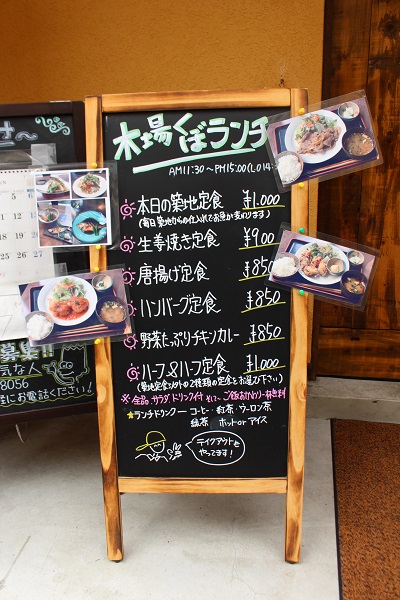 木場くぼランチ
AM11:30〜PM15:00(LO14:
本日の築地定食 ¥1.000
(毎日築地からの仕入れでお魚が変わります)
生姜焼き定食 ¥900
唐揚げ定食 ¥850
ハンバーグ定食 ¥850
野菜たっぷりチキンカレー ¥850
ハーフ&ハーフ定食 ¥1.000
(築地定食以外の2種類の定食をお選び下さい)
※全品、サラダ、ドリンク付 そして〜 ご飯おかわり一杯無料
★ランチドリンクー コーヒー・紅茶・ウーロン茶
緑茶 ホット or アイス
テイクアウトも
やってます!
募集!!
気な人
8056
軽にお電話ください!